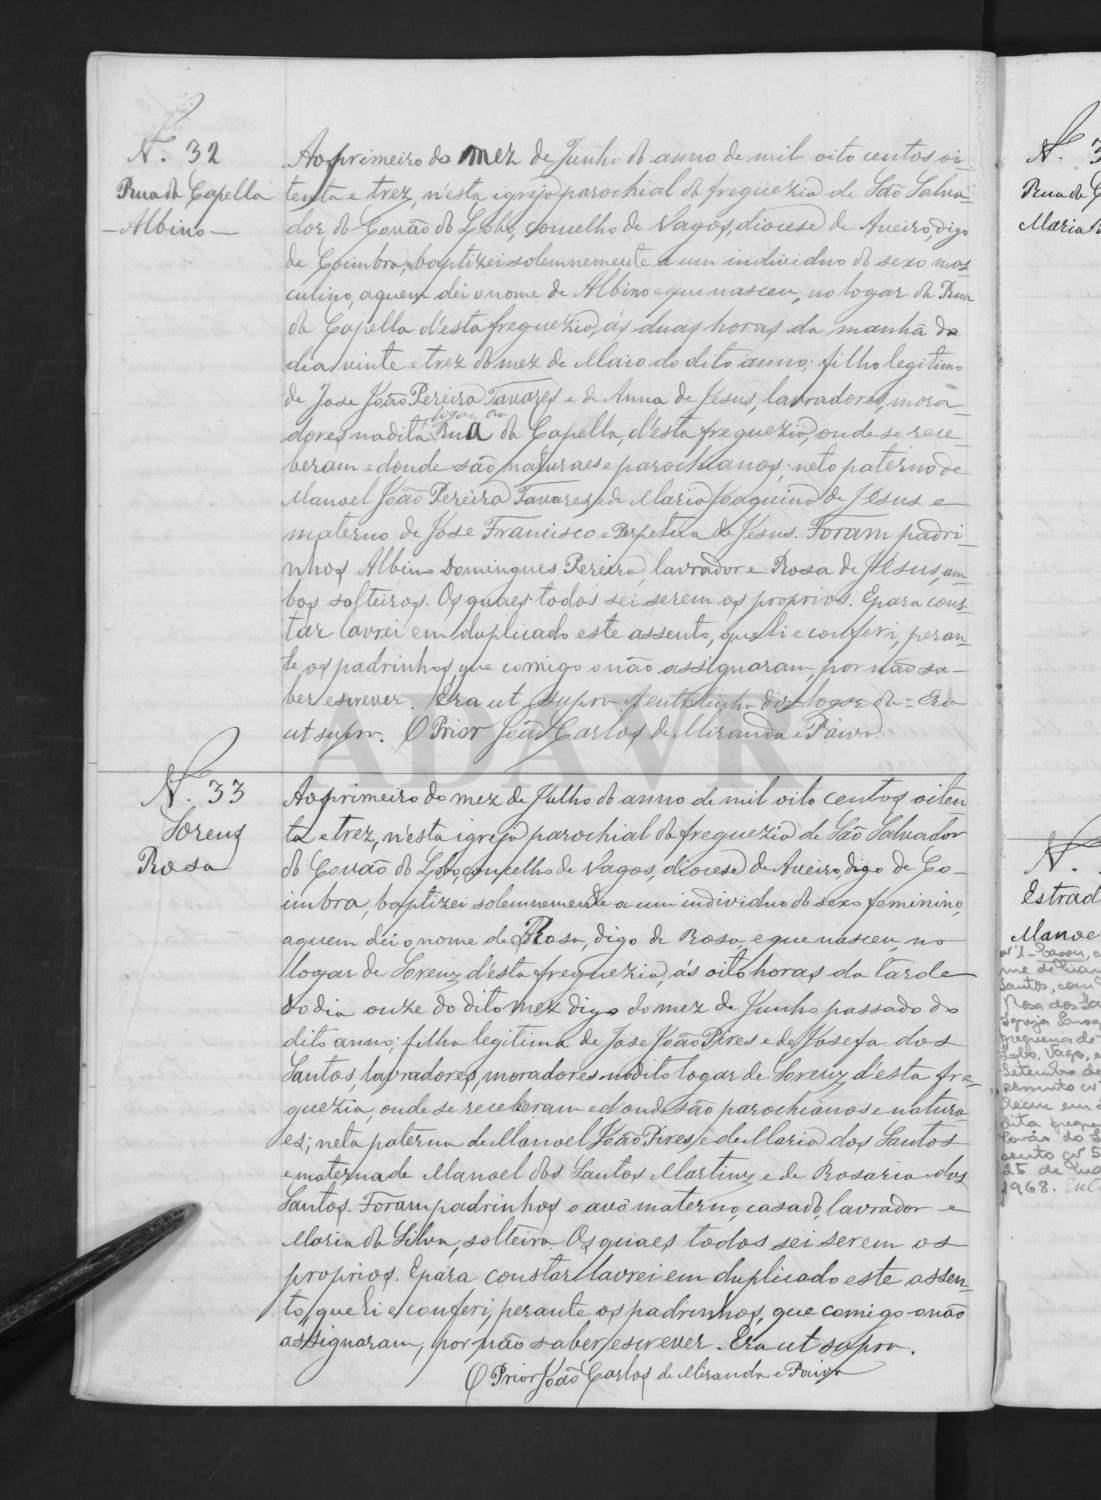 N. 32
Rua da Capella
- Albino -
Ao primeiro do mez de Junho do anno de mil oito centos oi-
tenta e trez, n'esta igreja parochial da freguezia de São Salva-
dor do Covão do Lobo, concelho de Vagos, diocese de Aveiro, digo
de Coimbra, baptizei solemnemente a um individuo do sexo mas-
culino, aquem dei o nome de Albino e que nasceu, no logar da Rua
da Capella d'esta freguezia, ás duas horas da manhã do
dia vinte e trez do mez de Maio do dito anno; filho legitimo
de Jose João Pereira Tavares e de Anna de Jesus, lavradores, mora-
dores na dita logar da Rua da Capella, d'esta freguezia, onde se rece-
beram e donde são naturaes e parochianos; neto paterno de
Manoel João Pereira Tavares e de Maria Joaquina de Jesus e
materno de José Francisco e Perpetua de Jesus. Foram padri-
nhos Albino Domingues Pereira, lavrador e Rosa de Jesus, am-
bos solteiros. Os quaes todos sei serem os proprios. E para cons-
tar lavrei em duplicado este assento, que li e conferi, peran-
te os padrinhos, que comigo o não assignaram, por não sa-
ber escrever. Era ut supra. A entrelinha diz = logar da = Era
ut supra. O Prior João Carlos de Miranda e Paiva
ADAVR
N. 33
Lorenz
Rosa
Ao primeiro do mez de Julho do anno de mil oito centos oiten
ta e trez, n'esta igreja parochial da freguezia de São Salvador
do Covão do Lobo, concelho de Vagos, diocese de Aveiro, digo de Co-
imbra, baptizei solemnemente a um individuo do sexo feminino,
aquem dei o nome de Rosa, digo de Rosa, e que nasceu, no
logar de Lorenz d'esta freguezia, ás oito horas da tarde
do dia onze do dito mez digo do mez de Junho passado do
dito anno; filha legitima de Jose João Pires e de Josefa dos
Santos, lavradores, moradores no dito logar de Lorenz, d'esta fre-
guezia, onde se receberam e donde são parochianos e natura
es; neta paterna de Manoel João Pires, e de Maria dos Santos
e materna de Manoel dos Santos Martins e de Rosaria dos
Santos. Foram padrinhos o avô materno, casado, lavrador e
Maria da Silva, solteira. Os quaes todos sei serem os
proprios. E para constar lavrei em duplicado este assen-
to, que li e conferi, perante os padrinhos, que comigo o não
assignaram, por não saber escrever. Era ut supra.
O Prior João Carlos de Miranda e Paiva
N. 3
Rua da C
Maria
N.
Estrad
Manoe
Santos, com
Rosa dos Sa
Lobo, Vagos, e
Setembro de
25 de
1968.